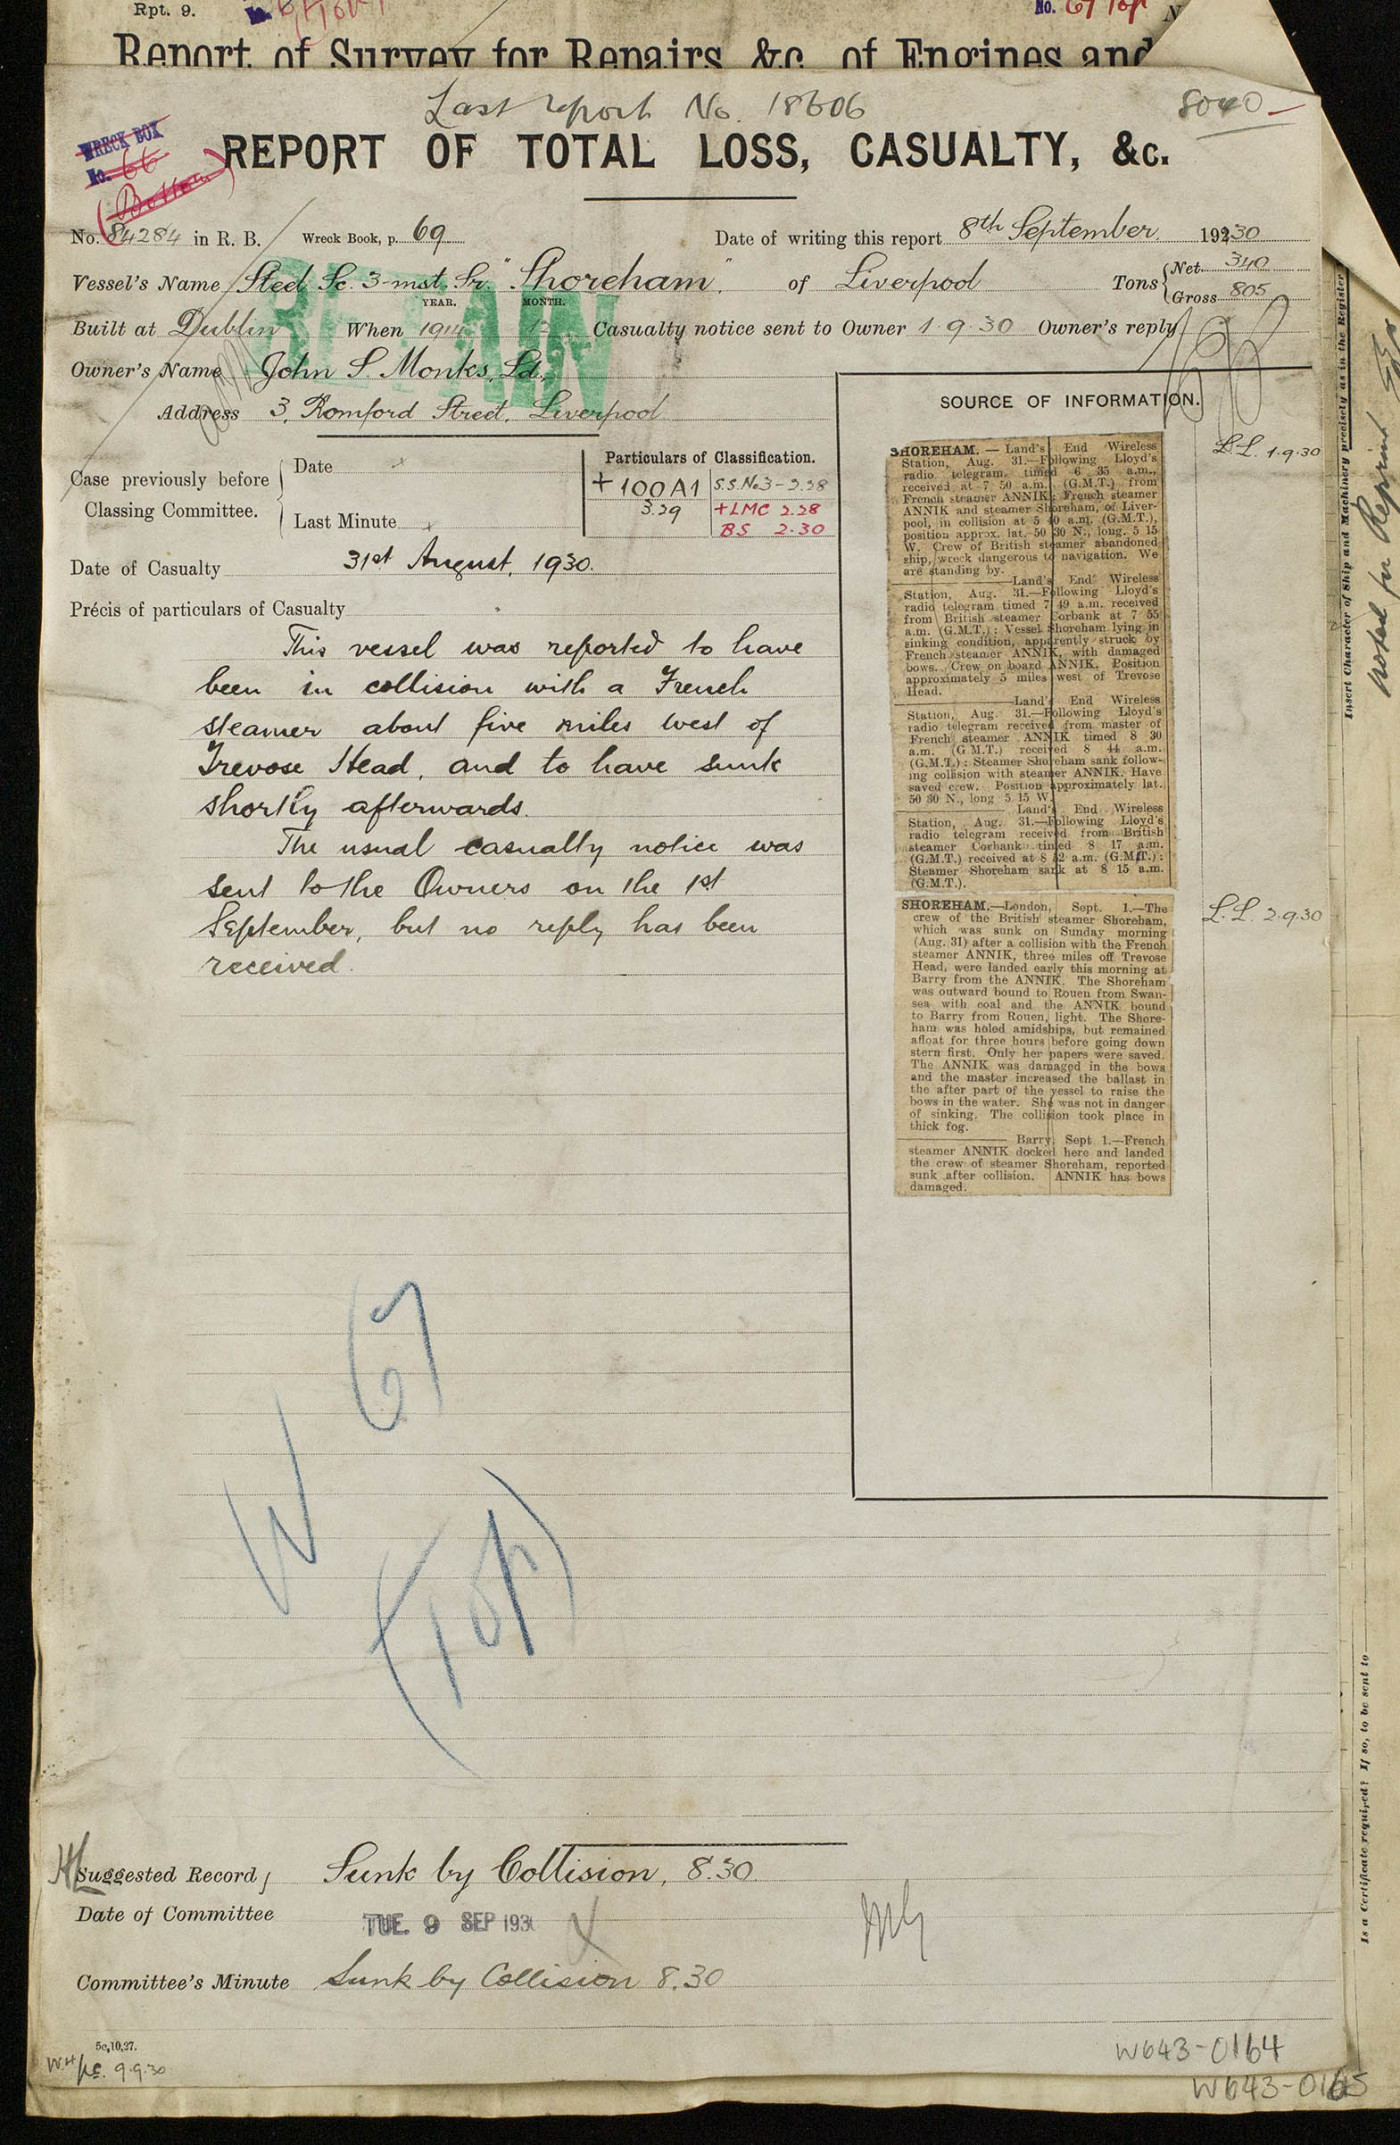 Rpt. 9.
No. 67 Top
Report of Survey for Repairs, &c., of Engines and
Last report No. 18606
8040
WRECK BOX
No. 66
(Bottom)
REPORT OF TOTAL LOSS, CASUALTY, &c.
No. 84284 in R. B. Wreck Book, p. 69
Date of writing this report 8th September 1930
Vessel's Name Steel Sc. 3-mst. Sr. "Shoreham" of Liverpool Tons Net 340
Gross 805
YEAR. MONTH.
Built at Dublin When 1914 12 Casualty notice sent to Owner 1.9.30 Owner's reply
RETAIN
Owner's Name John S. Monks, Ld.,
Address 3, Romford Street, Liverpool
Case previously before Classing Committee.
Date x
Last Minute x
Particulars of Classification.
+100A1 S.S. No3-3.28
3.29 +LMC 2.28
BS 2.30
Date of Casualty 31st August, 1930.
Précis of particulars of Casualty
This vessel was reported to have
been in collision with a French
steamer about five miles west of
Trevose Head, and to have sunk
shortly afterwards.
The usual casualty notice was
sent to the Owners on the 1st
September, but no reply has been
received.
SOURCE OF INFORMATION.
L.L. 1.9.30
SHOREHAM. — Land's End Wireless
Station, Aug. 31.—Following Lloyd's
radio telegram, timed 6 35 a.m.,
received at 7 50 a.m. (G.M.T.) from
French steamer ANNIK: French steamer
ANNIK and steamer Shoreham, of Liver-
pool, in collision at 5 40 a.m. (G.M.T.),
position approx. lat. 50 30 N., long. 5 15
W. Crew of British steamer abandoned
ship, wreck dangerous to navigation. We
are standing by.
——— Land's End Wireless
Station, Aug. 31.—Following Lloyd's
radio telegram timed 7 49 a.m. received
from British steamer Corbank at 7 55
a.m. (G.M.T.): Vessel Shoreham lying in
sinking condition, apparently struck by
French steamer ANNIK, with damaged
bows. Crew on board ANNIK. Position
approximately 5 miles west of Trevose
Head.
——— Land's End Wireless
Station, Aug. 31.—Following Lloyd's
radio telegram received from master of
French steamer ANNIK timed 8 30
a.m. (G.M.T.) received 8 44 a.m.
(G.M.T.): Steamer Shoreham sank follow-
ing collision with steamer ANNIK. Have
saved crew. Position approximately lat.
50 30 N., long 5 15 W.
——— Land's End Wireless
Station, Aug. 31.—Following Lloyd's
radio telegram received from British
steamer Corbank timed 8 17 a.m.
(G.M.T.) received at 8 52 a.m. (G.M.T.):
Steamer Shoreham sank at 8 15 a.m.
(G.M.T.).
L.L. 2.9.30
SHOREHAM.—London, Sept. 1.—The
crew of the British steamer Shoreham,
which was sunk on Sunday morning
(Aug. 31) after a collision with the French
steamer ANNIK, three miles off Trevose
Head, were landed early this morning at
Barry from the ANNIK. The Shoreham
was outward bound to Rouen from Swan-
sea with coal and the ANNIK bound
to Barry from Rouen, light. The Shore-
ham was holed amidships, but remained
afloat for three hours before going down
stern first. Only her papers were saved.
The ANNIK was damaged in the bows
and the master increased the ballast in
the after part of the vessel to raise the
bows in the water. She was not in danger
of sinking. The collision took place in
thick fog.
——— Barry, Sept. 1.—French
steamer ANNIK docked here and landed
the crew of steamer Shoreham, reported
sunk after collision. ANNIK has bows
damaged.
W 67
(Top)
Suggested Record Sunk by Collision, 8.30.
Date of Committee TUE. 9 SEP 1930
Committee's Minute Sunk by Collision 8.30
5c,10,27.
9.9.30
W643-0164
W643-0165
Insert Character of Ship and Machinery precisely as in the Register
noted for Reprint
Is a Certificate required? If so, to be sent to